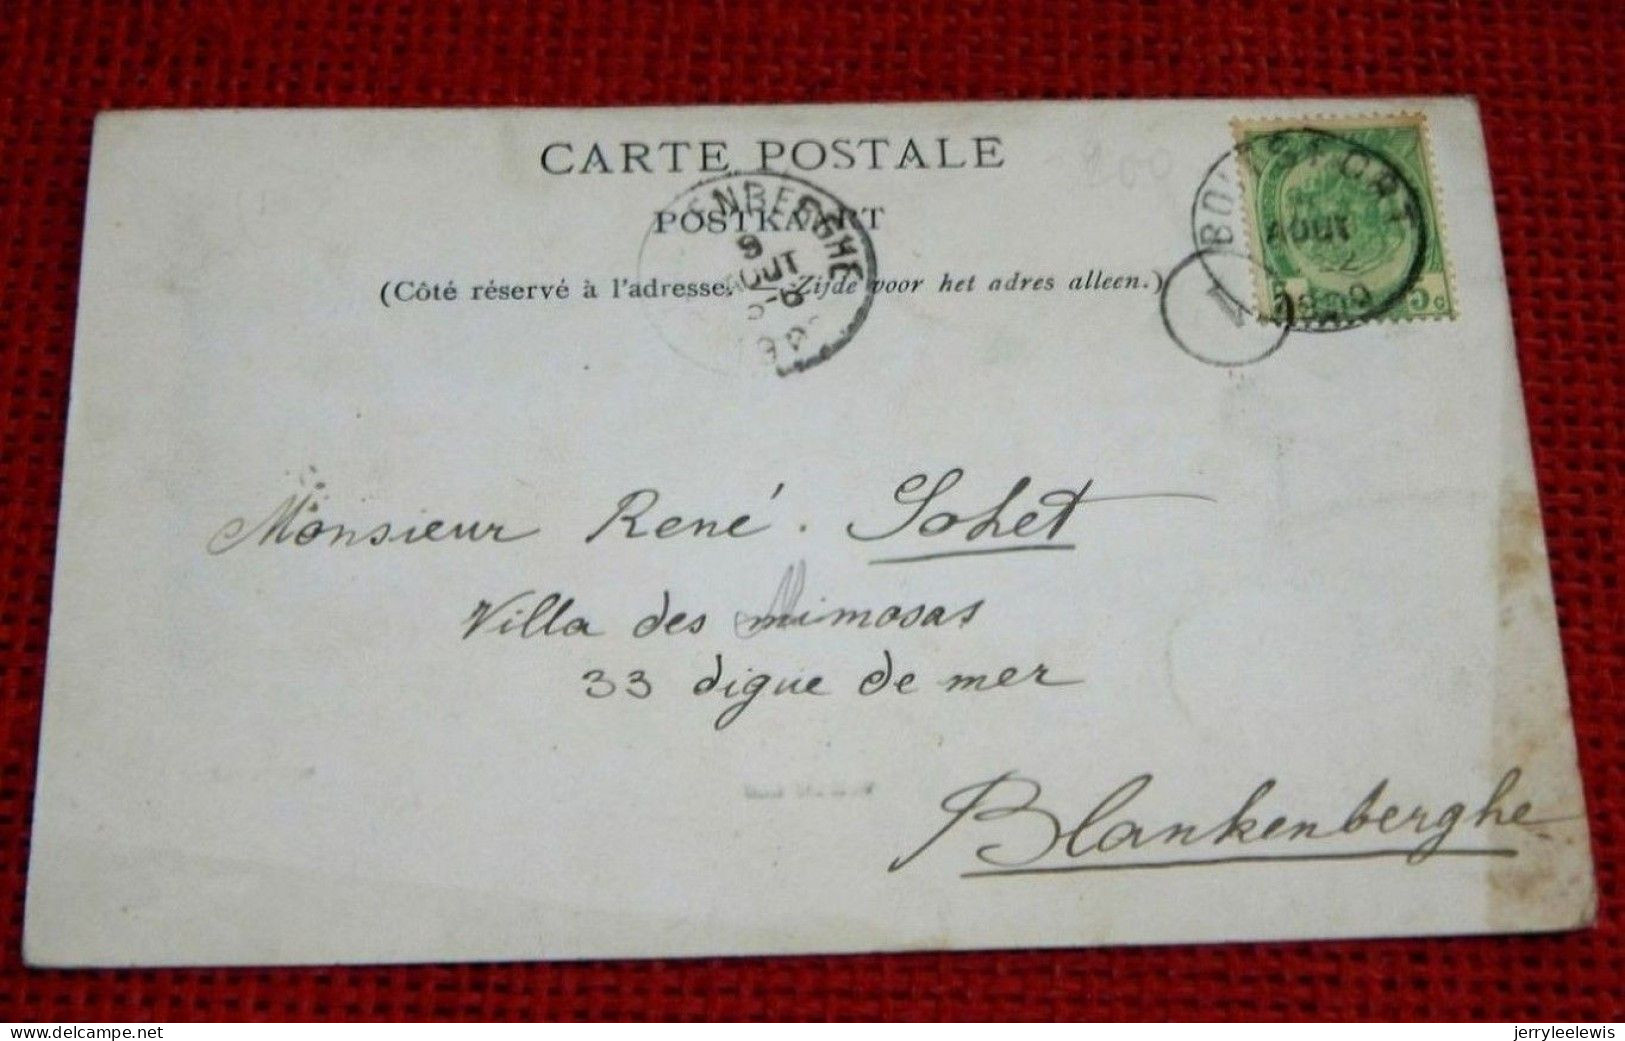 CARTE POSTALE
POSTKAART
(Côté réservé à l'adresse. — Zijde voor het adres alleen.)
ENBERGHE
9
AOUT
BOITSFORT
AOUT
1
Monsieur René. Sohet
Villa des Mimosas
33 digue de mer
Blankenberghe
www.delcampe.net
jerryleelewis